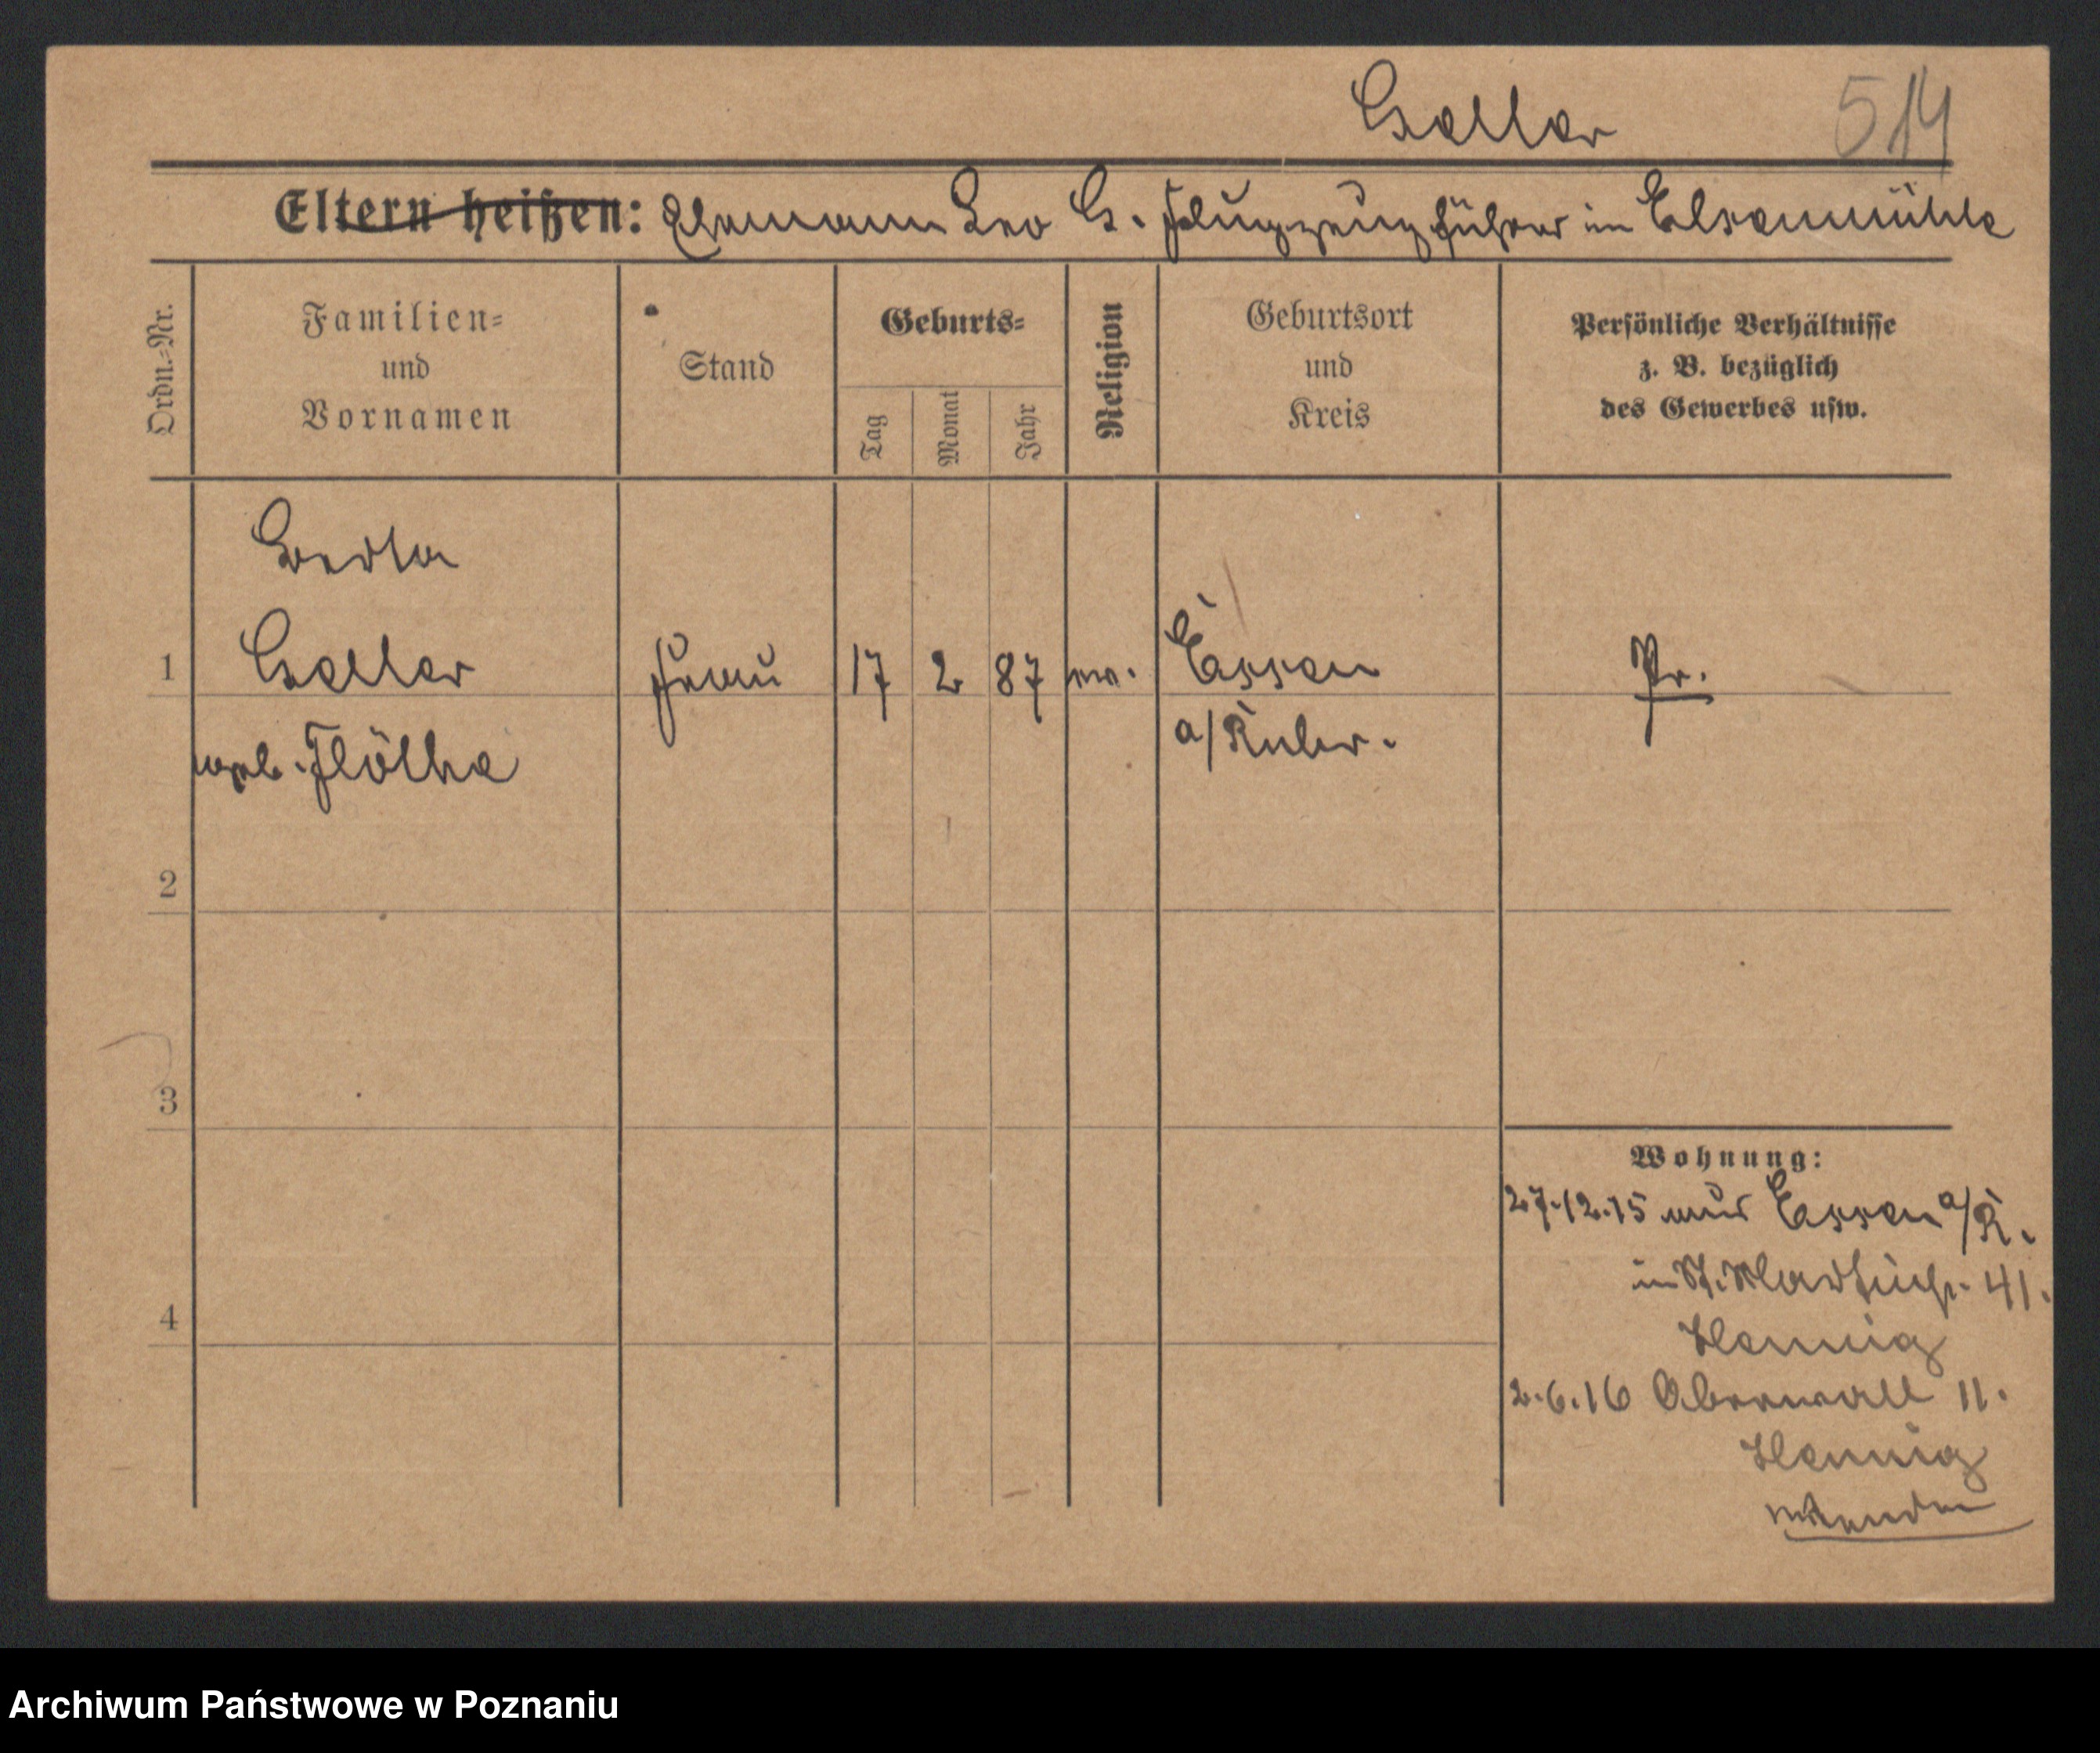 Geller
514
Eltern heißen: Ehemann Leo G. Flugzeugführer in Elsenmühle
Ordn.-Nr.
Familien=
und
Vornamen
Stand
Geburts=
Tag
Monat
Jahr
Religion
Geburtsort
und
Kreis
Persönliche Verhältnisse
z. B. bezüglich
des Gewerbes usw.
Berta
1 Geller Frau 17 2 87 ev. Essen Pr.
geb. Flöthe a/Ruhr.
2
3
4
Wohnung:
27.12.15 aus Essen a/R.
in St. Martinstr. 41.
Hennig
2.6.16 Oberwall 11.
Hennig
Archiwum Państwowe w Poznaniu